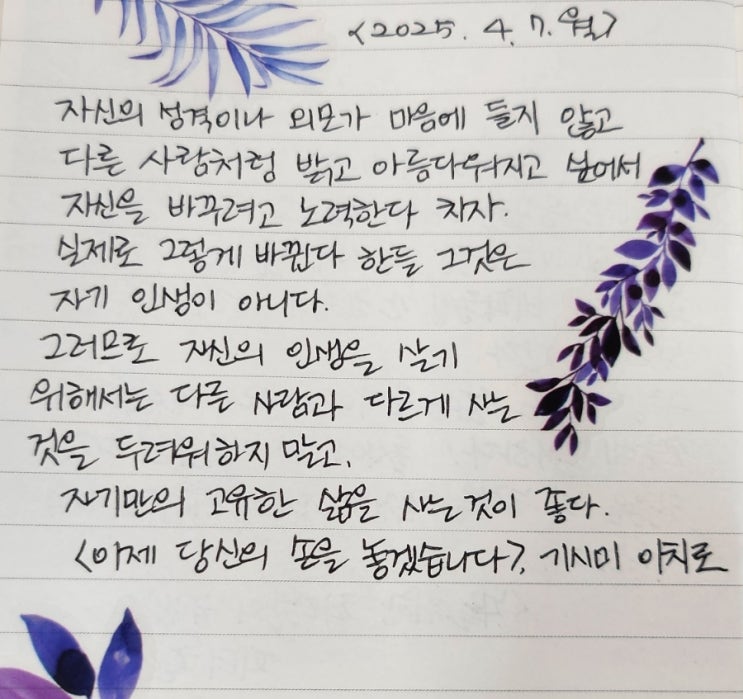 <2025. 4. 7. 월>
자신의 성격이나 외모가 마음에 들지 않고
다른 사람처럼 밝고 아름다워지고 싶어서
자신을 바꾸려고 노력한다 치자.
실제로 그렇게 바뀐다 한들 그것은
자기 인생이 아니다.
그러므로 자신의 인생을 살기
위해서는 다른 사람과 다르게 사는
것을 두려워하지 말고,
자기만의 고유한 삶을 사는것이 좋다.
<이제 당신의 손을 놓겠습니다>, 기시미 이치로